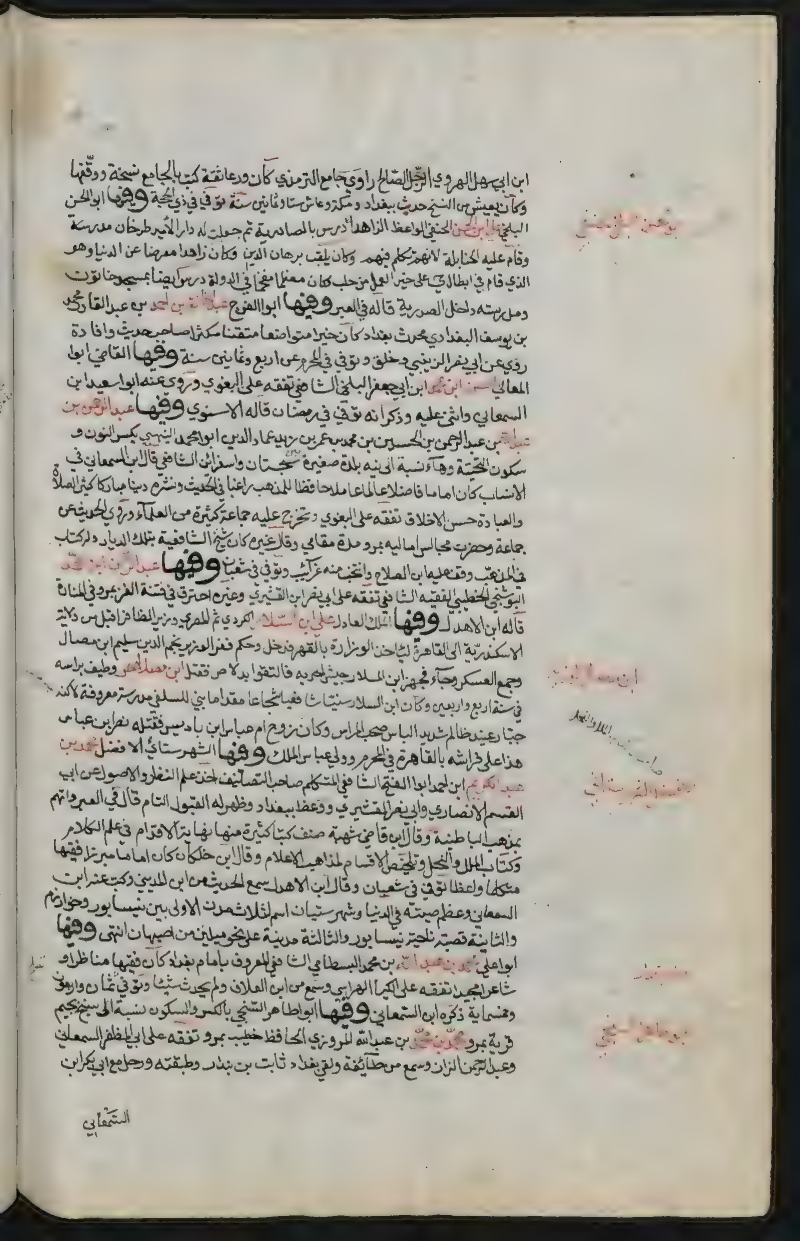 ابن ابي سهل الهروي الرجل الصالح راوي جامع الترمذي كان ورعا ثقة كتب بالجامع نسخة ووقفها
وكان يعيش من النسخ حدث ببغداد ومكة وعاش ستا وثمانين سنة توفي في ذي الحجة وفيها ابو الحسن
البلخي علي ابن الحسن الحنفي الواعظ الزاهد درس بالصادرية ثم جعلت له دار الامير طرخان مدرسة
وقام عليه الحنابلة لانه تكلم فيهم وكان يلقب برهان الدين وكان زاهدا معرضا عن الدنيا وهو
الذي قام في ابطال حي على خير العمل من حلب كان معظما مفخما في الدولة درس ايضا بمسجد خاتون
ومدرسته داخل الصدرية قاله في العبر وفيها ابوا الفرج عبد الخالق بن احمد بن عبد القادر بن محمد
بن يوسف البغدادي محدث بغداد كان خيرا متواضعا متقنا مكثرا صاحب حديث وافادة
روي عن ابي نصر الزينبي وخلق وتوفي في المحرم عن اربع وثمانين سنة وفيها القاضي ابوا
المعالي ابن ابي جعفر البلخي الشافعي تفقه على البغوي وروي عنه ابوا سعيد ابن
السمعاني واثنى عليه وذكر انه توفي في رمضان قاله الاسنوي وفيها عبد الرحمن بن
بن عبد الرحمن بن الحسين بن محمد بن عمر بن يزيد عماد الدين ابوا محمد النيهي بكسر النون و
سكون التحتية وهاء نسبة الى نيه بلدة صغيرة بين سجستان واسفرائن الشافعي قال ابن السمعاني في
الانساب كان اماما فاضلا عالما عاملا حافظا للمذهب راغبا في الحديث ونشره دينا مباركا كثير الصلاة
والعبادة حسن الاخلاق تفقه على البغوي وتخرج عليه جماعة كثيرة من العلماء وروي الحديث عن
جماعة وحضرت مجالس اماليه بمرو مدة مقامي وقال غيره كان شيخ الشافعية بتلك الديار وله كتاب
في المذهب وقف عليه ابن الصلاح وانتخب منه غرائب وتوفي في شعبان وفيها
البوشنجي الخطيبي الفقيه الشافعي تفقه على ابي نصر ابن القشيري وغيره احترق في فتنة الغز بمرو في المنارة
قاله ابن الاهدل وفيها الملك العادل علي ابن السلار الكردي ثم المصري وزير الظافر اقبل من ولاية
الاسكندرية الى القاهرة لياخذ الوزارة بالقهر فدخل وحكم ففر الوزير نجم الدين سليم ابن مصال
وجمع العساكر وجاء فجهز ابن السلار جيشا لحربه فالتقوا بدلاص فقتل ابن مصال وطيف براسه
في سنة اربع واربعين وكان ابن السلار سنيا شافعيا شجاعا مقداما بني للسلفي مدرسة معروفة لاكنه
جبار عنيد ظالم شديد الباس صعب المراس وكان زوج ام عباس ابن باديس فقتله نصر ابن عباس
هذا على فراشه بالقاهرة في المحرم وولي عباس الملك وفيها الشهرستاني الافضل محمد بن
عبد الكريم ابن احمد ابوا الفتح الشافعي المتكلم صاحب التصانيف اخذ علم النظر والاصول عن ابي
القسم الانصاري وابي نصر القشيري ووعظ ببغداد وظهر له القبول التام قال في العبر واتهم
بمذهب الباطنية وقال ابن قاضي شهبة صنف كتبا كثيرة منها نهاية الاقدام في علم الكلام
وكتاب الملل والنحل وتلخيص الاقسام لمذاهب الاعلام وقال ابن خلكان كان اماما مبرزا فقيها
متكلما واعظا توفي في شعبان وقال ابن الاهدل سمع الحديث من ابن المديني وكتب عنه ابن
السمعاني وعظم صيته في الدنيا وشهرستان اسم لثلاث مدن الاولى بين نيسابور وخوارزم
والثانية قصبة ناحية نيسابور والثالثة مدينة على نحو ميلين من اصبهان انتهى وفيها
ابوا علي محمد بن عبد الله بن محمد البسطامي الشافعي المعروف بامام بغداد كان فقيها مناظرا و
شاعرا مجيدا تفقه على الكيا الهراسي وسمع من ابن العلاف ولم يحدث شيئا وتوفي في ثمان واربعين
وخمسماية ذكره ابن السمعاني وفيها ابوا طاهر السنجي بالكسر والسكون نسبة الى سنج بجيم
قرية بمرو محمد بن محمد بن عبد الله المروزي الحافظ خطيب مرو تفقه على ابي المظفر السمعاني
وعبد الرحمن الزاز وسمع من طائفة ولقي ببغداد ثابت بن بندار وطبقته ورحل مع ابي بكر ابن
السمعاني